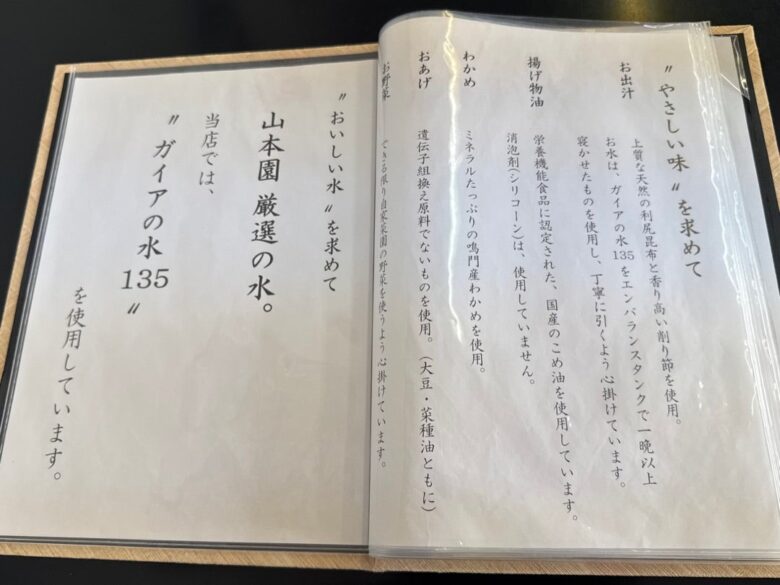 〃やさしい味〃を求めて
お出汁
上質な天然の利尻昆布と香り高い削り節を使用。
お水は、ガイアの水135をエンバランスタンクで一晩以上
寝かせたものを使用し、丁寧に引くよう心掛けています。
揚げ物油
栄養機能食品に認定された、国産のこめ油を使用しています。
消泡剤(シリコーン)は、使用していません。
わかめ
ミネラルたっぷりの鳴門産わかめを使用。
おあげ
遺伝子組換え原料でないものを使用。(大豆・菜種油ともに)
お野菜
できる限り自家菜園の野菜を使うよう心掛けています。
〃おいしい水〃を求めて
山本園 厳選の水。
当店では、
〃ガイアの水135〃
を使用しています。